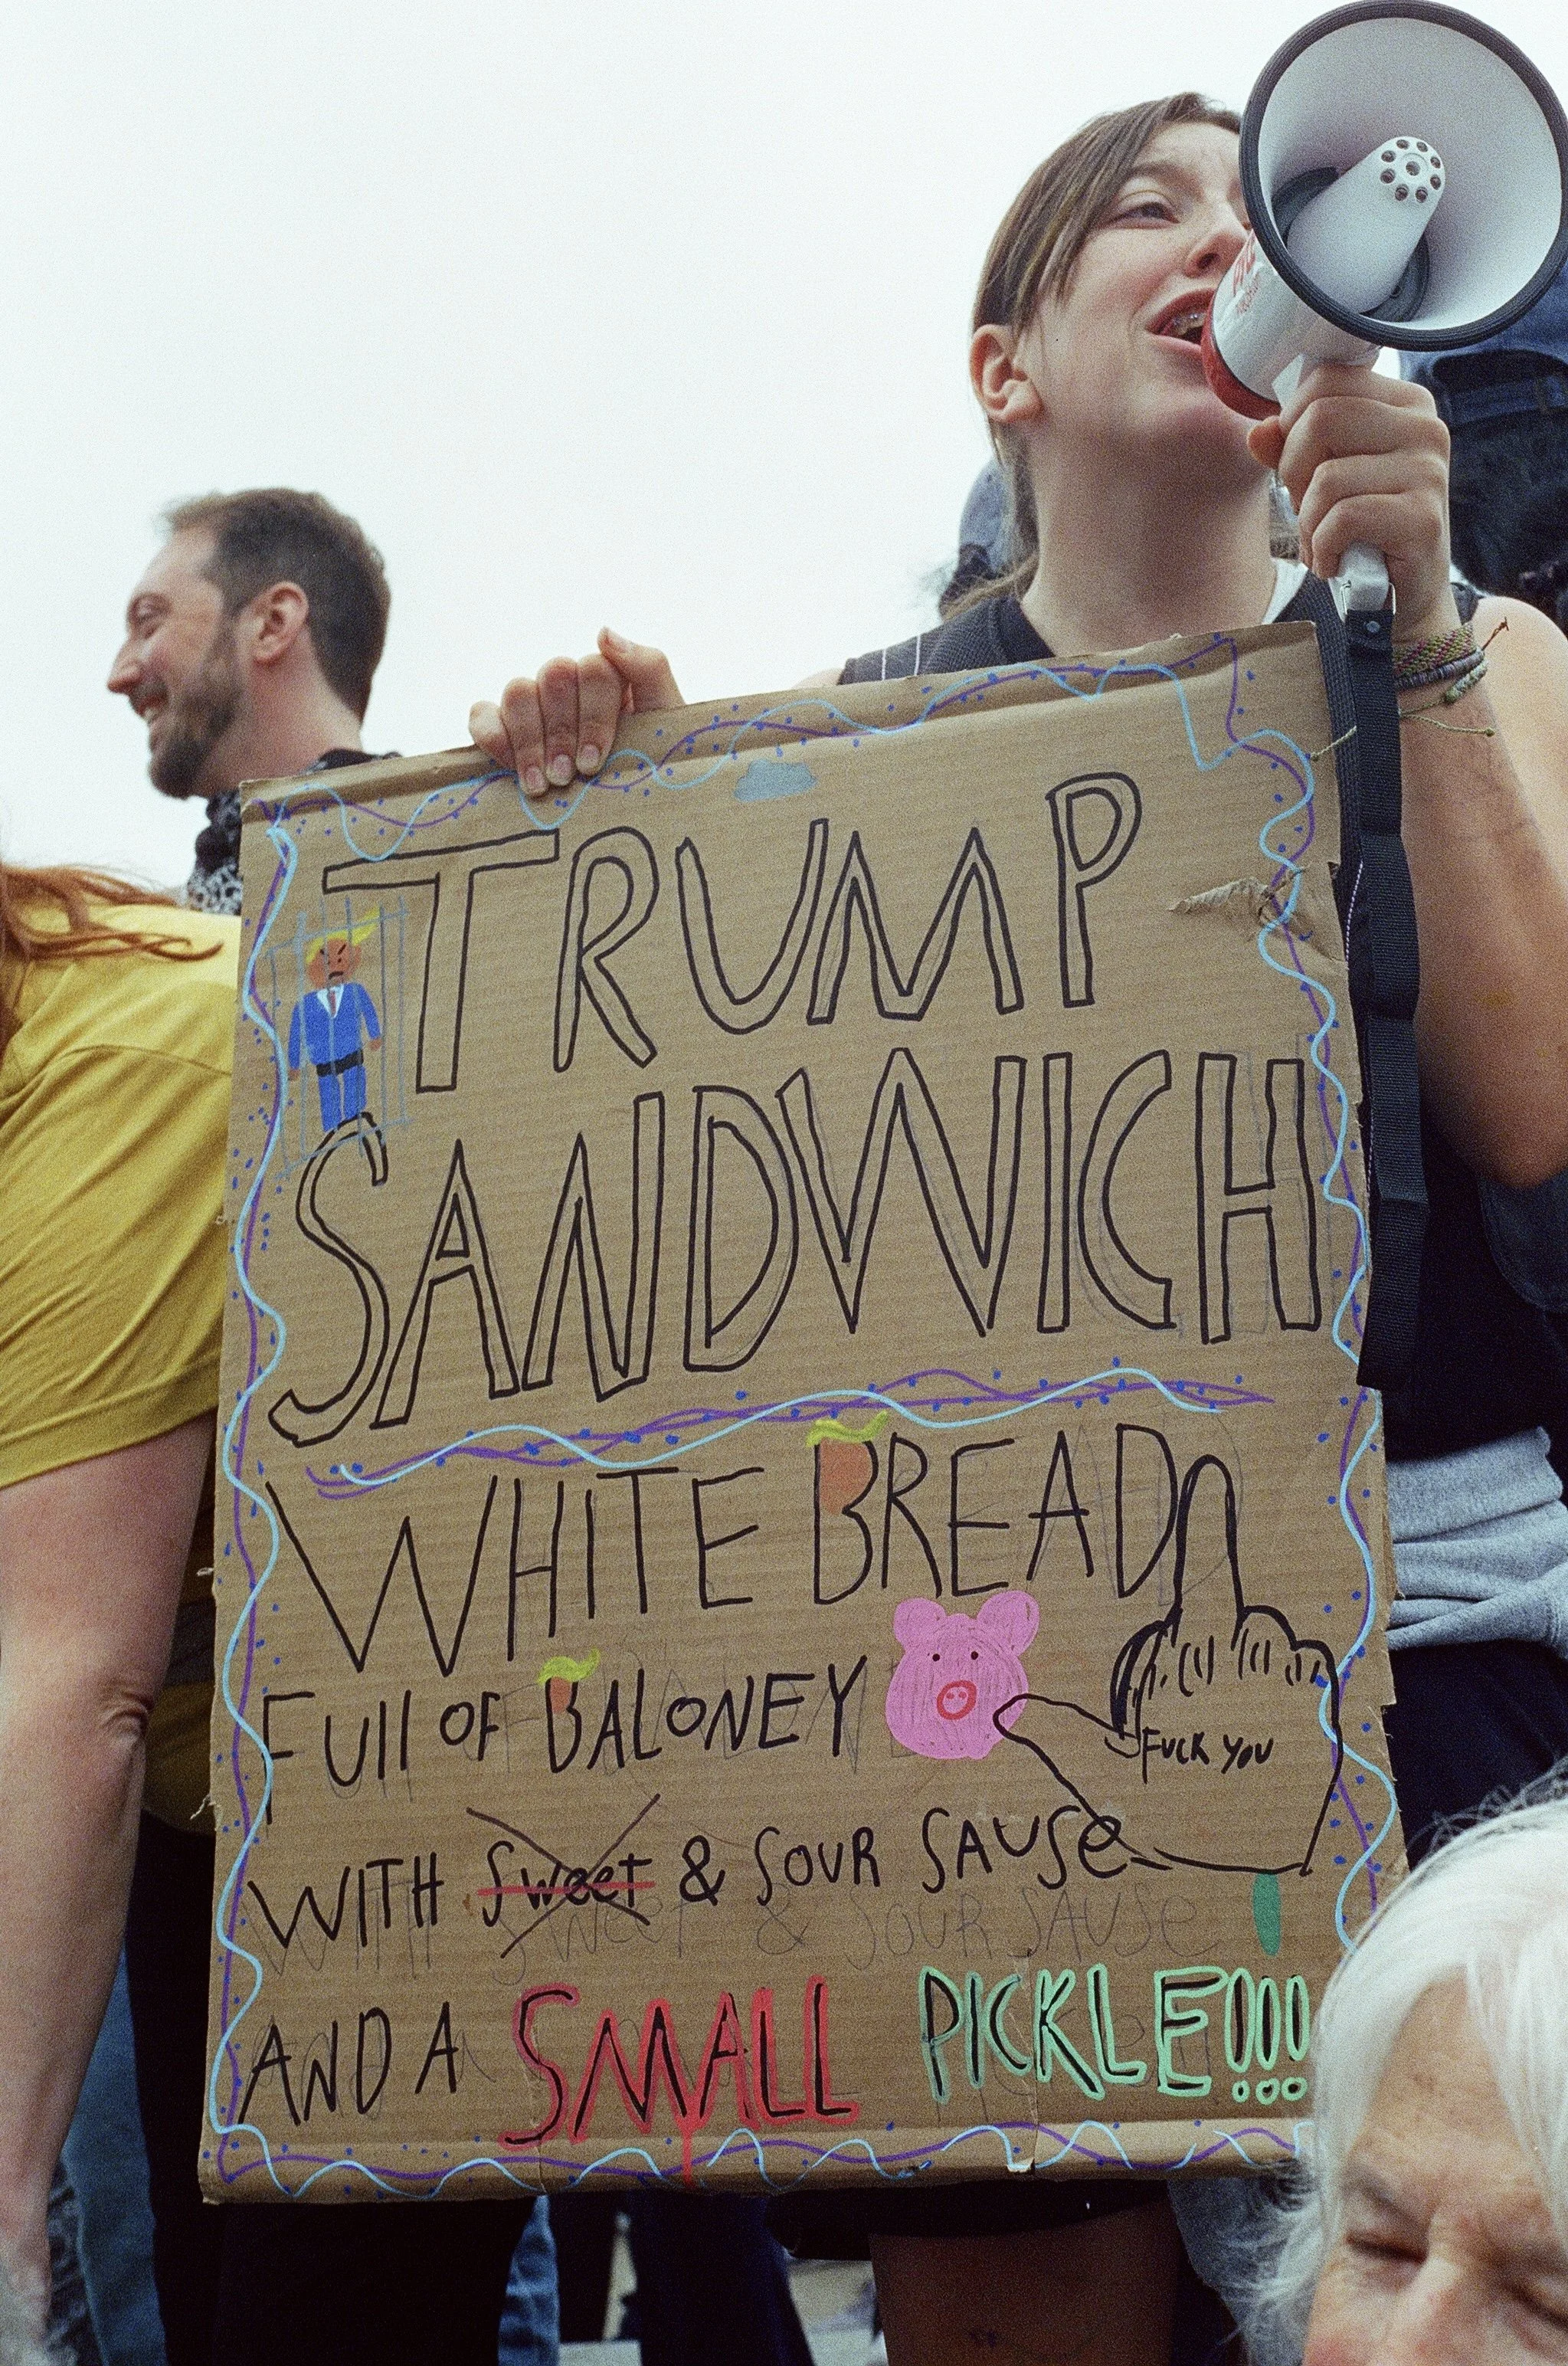 TRUMP
SANDWICH
WHITE BREAD
FUll OF BALONEY
FUCK YOU
WITH Sweet & SOUR SAUSe
AND A SMALL PICKLE!!!